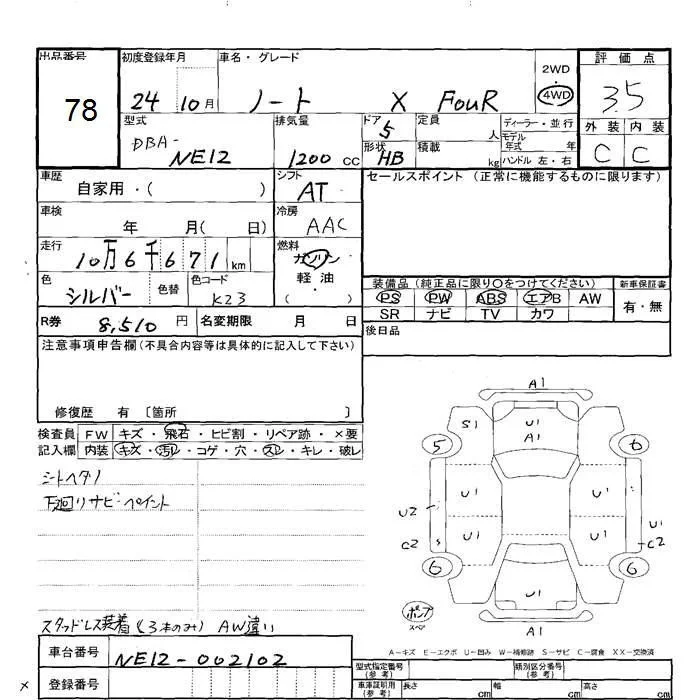 出品番号 初度登録年月 車名・グレード 2WD 評価点
78 24 10月 ノート X FOUR 4WD 3.5
型式 排気量 ドア 定員 ディーラー・並行 外装 内装
DBA- 5 人 モデル年式 年
NE12 1200cc 形状 HB 積載 kg ハンドル 左・右 C C
車歴 自家用・( ) シフト AT セールスポイント (正常に機能するものに限ります)
車検 年 月( 日) 冷房 AAC
走行 10万6千671km 燃料 ガソリン
軽・油
( ・ )
色 シルバー 色替 色コード K23
装備品 (純正品に限り○をつけてください) 新車保証書
PS PW ABS エアB AW 有・無
SR ナビ TV カワ
R券 8,510円 名変期限 月 日 後日品
注意事項申告欄(不具合内容等は具体的に記入して下さい)
修復歴 有 〔箇所 〕
検査員 FW キズ・飛石・ヒビ割・リペア跡・×要
記入欄 内装 キズ・汚レ・コゲ・穴・スレ・キレ・破レ
シートヘタリ
下廻りサビ・ペイント
スタッドレス装着(3本のみ) AW違い
A1
S1 U1
A1
5 6
U1 U1
U2 U1
C2 U1 U1 C2
6 6
U1
ポンプ
スペア A1
A-キズ E-エクボ U-凹み W-補修跡 S-サビ C-腐食 XX-交換済
車台番号 NE12-002102
登録番号
型式指定番号(参考) 類別区分番号(参考)
車庫証明用(参考) 長さ cm 幅 cm 高さ cm
×